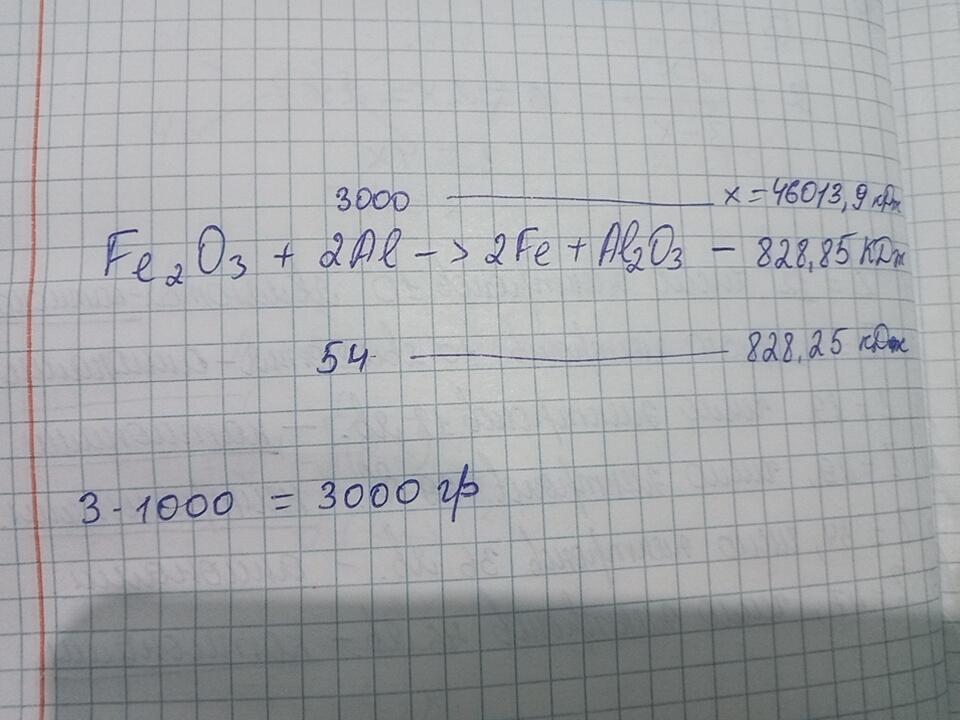 3000 — x = 46013,9 кДж
Fe₂O₃ + 2Al -> 2Fe + Al₂O₃ - 828,85 КДж
54 — 828,25 кДж
3 · 1000 = 3000 гр